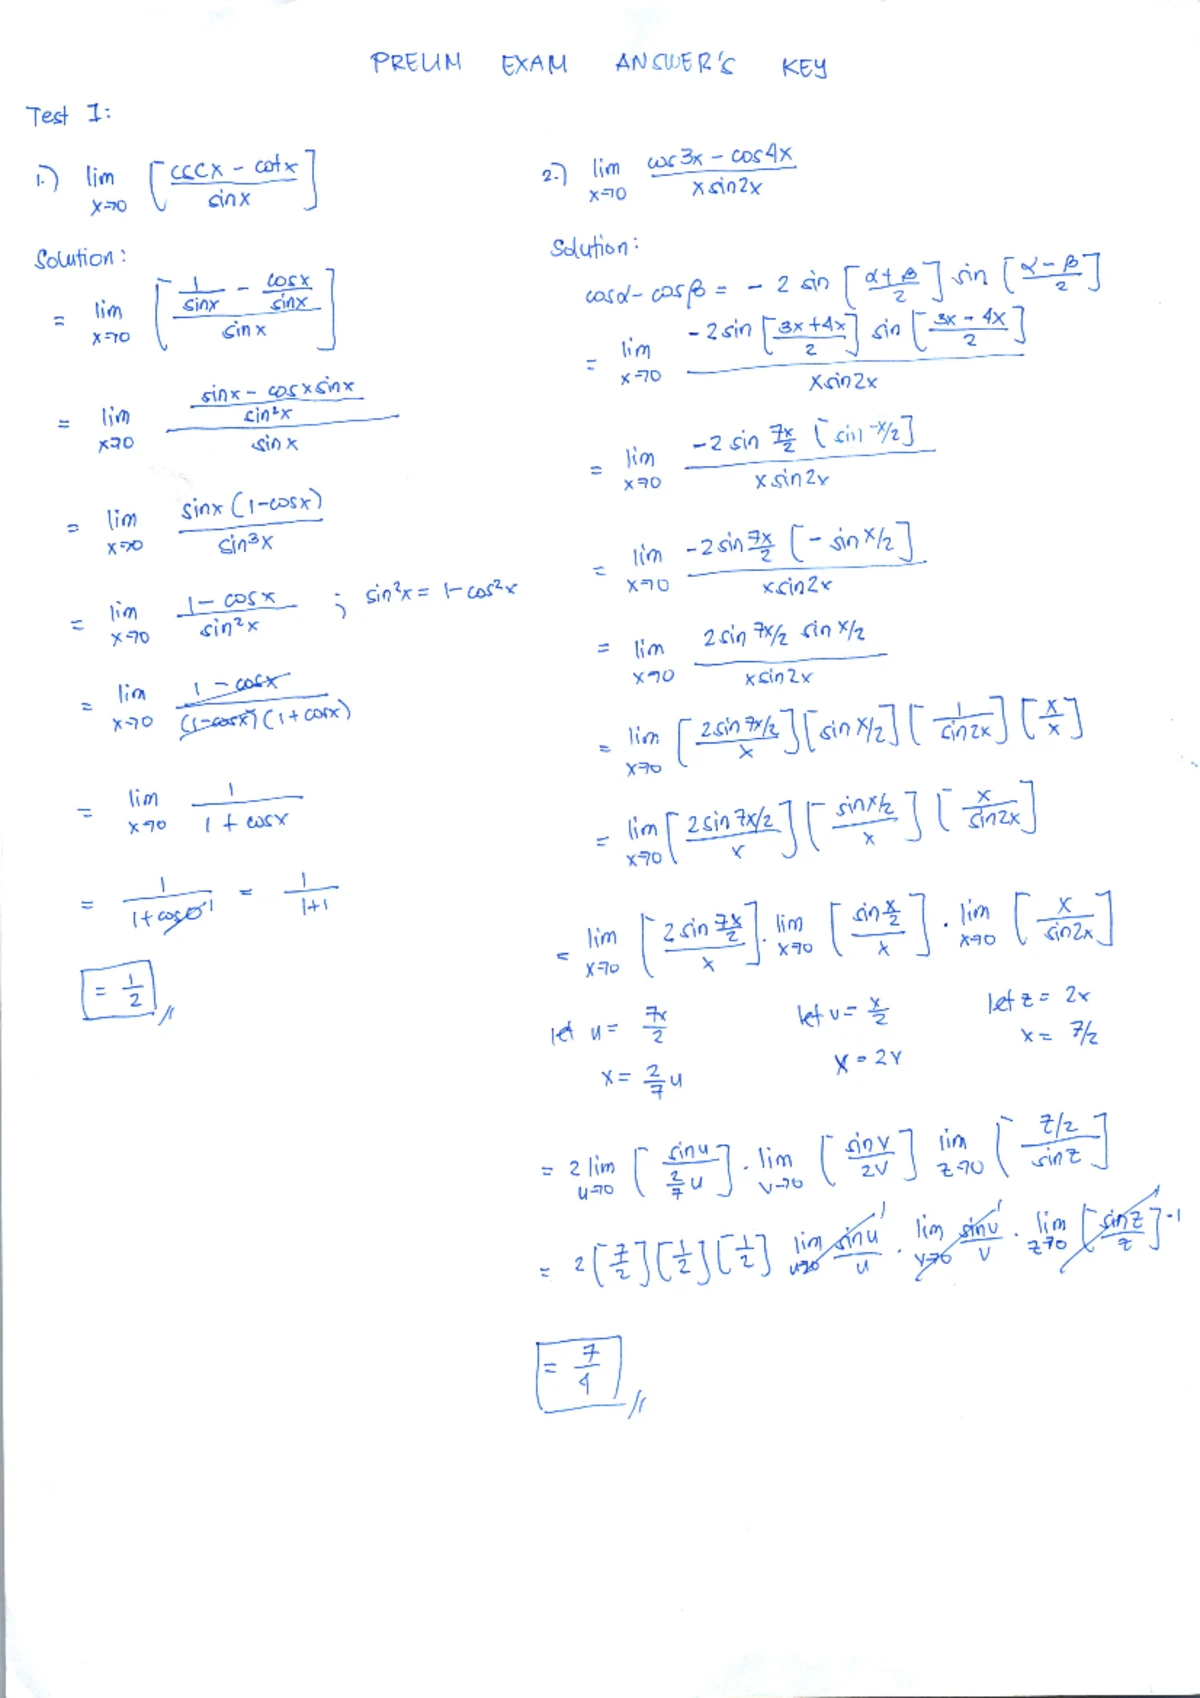 PRELIM EXAM ANSWER'S KEY
Test I:
1.) lim x→0 [(cscx - cotx)/sinx]
Solution:
= lim x→0 [(1/sinx - cosx/sinx)/sinx]
= lim x→0 ((sinx - cosxsinx)/sin²x)/sinx
= lim x→0 sinx(1-cosx)/sin³x
= lim x→0 (1-cosx)/sin²x ; sin²x = 1-cos²x
= lim x→0 (1-cosx)/((1-cosx)(1+cosx))
= lim x→0 1/(1+cosx)
= 1/(1+cos0) 1 = 1/(1+1)
= 1/2 //
2.) lim x→0 (cos3x - cos4x)/(x sin2x)
Solution:
cosα - cosβ = -2 sin [(α+β)/2] sin [(α-β)/2]
= lim x→0 (-2 sin [(3x+4x)/2] sin [(3x-4x)/2])/(x sin2x)
= lim x→0 (-2 sin 7x/2 [sin -x/2])/(x sin2x)
= lim x→0 (-2 sin 7x/2 [-sin x/2])/(x sin2x)
= lim x→0 (2 sin 7x/2 sin x/2)/(x sin2x)
= lim x→0 [(2 sin 7x/2)/x] [sin x/2] [1/sin2x] [x/x]
= lim x→0 [(2 sin 7x/2)/x] [(sin x/2)/x] [x/sin2x]
= lim x→0 [(2 sin 7x/2)/x] · lim x→0 [(sin x/2)/x] · lim x→0 [x/sin2x]
let u = 7x/2 let v = x/2 let z = 2x
x = 2/7 u x = 2v x = z/2
= 2 lim u→0 [sinu/(2/7 u)] · lim v→0 [sinv/2v] lim z→0 [(z/2)/sinz]
= 2 [7/2] [1/2] [1/2] lim u→0 sinu/u 1 · lim v→0 sinv/v 1 · lim z→0 [sinz/z]⁻¹ 1
= 7/4 //